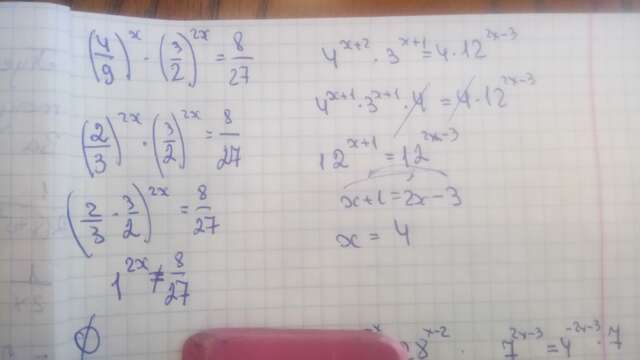 (4/9)^x · (3/2)^2x = 8/27
(2/3)^2x · (3/2)^2x = 8/27
(2/3 · 3/2)^2x = 8/27
1^2x ≠ 8/27
∅
4^x+2 · 3^x+1 = 4 · 12^2x-3
4^x+1 · 3^x+1 · 4 = 4 · 12^2x-3
12^x+1 = 12^2x-3
x+1 = 2x-3
x = 4
8^x-2 · 7^2x-3 = 4^-2x · 7